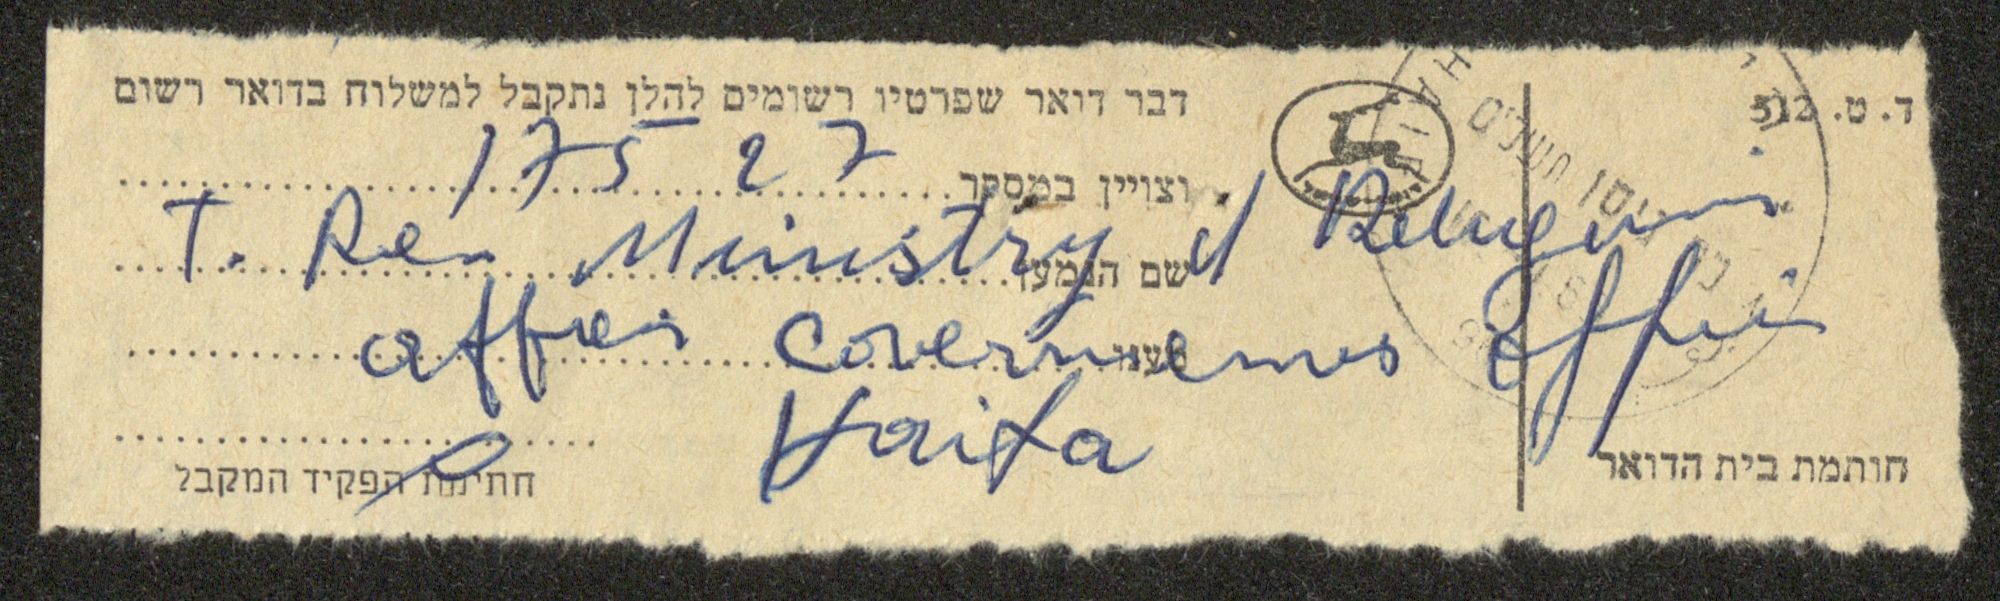 ד. ט. 512
דבר דואר שפרטיו רשומים להלן נתקבל למשלוח בדואר רשום
וצויין במספר 175 27
T. Rev. Ministry of Religious
שם הנמען
affres Covernemes Offii
מענו
Haifa
חתימת הפקיד המקבל
חותמת בית הדואר